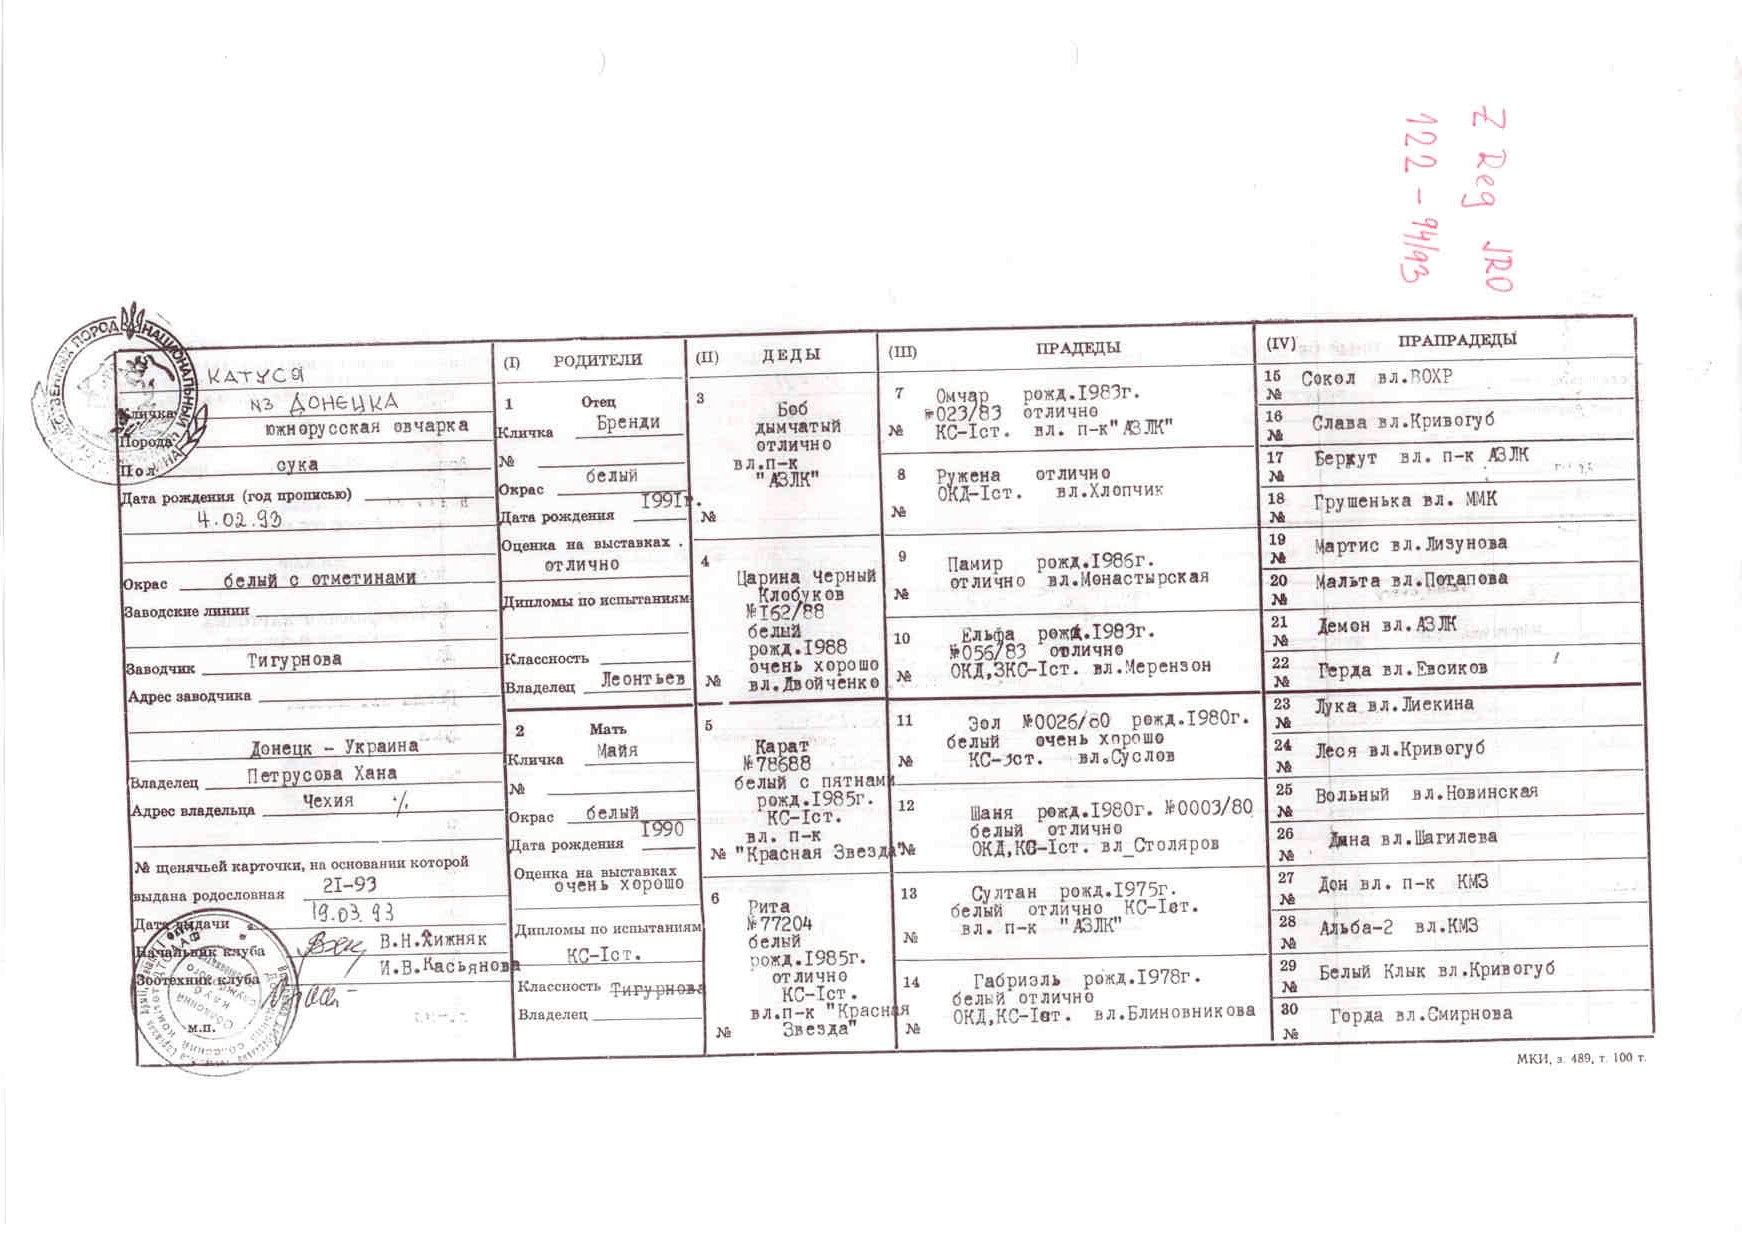 Z Reg JRO
122-94/93
КАТУСЯ
ИЗ ДОНЕЦКА
Кличка
Порода южнорусская овчарка
Пол сука
Дата рождения (год прописью)
4.02.93
Окрас белый с отметинами
Заводские линии
Заводчик Тигурнова
Адрес заводчика
Донецк - Украина
Владелец Петрусова Хана
Адрес владельца Чехия ./.
№ щенячьей карточки, на основании которой
выдана родословная 2I-93
Дата выдачи 19.03.93
Начальник клуба В.Н.Хижняк
Зоотехник клуба И.В.Касьянова
м.п.
(I) РОДИТЕЛИ
1 Отец
Кличка Бренди
№
Окрас белый
Дата рождения I99Iг.
Оценка на выставках .
отлично
Дипломы по испытаниям
Классность
Владелец Леонтьев
2 Мать
Кличка Майя
№
Окрас белый
Дата рождения I990
Оценка на выставках
очень хорошо
Дипломы по испытаниям
КС-Iст.
Классность Тигурнова
Владелец
(II) ДЕДЫ
3
Боб
дымчатый
отлично
вл.п-к
"АЗЛК"
№
4
Царина Черный
Клобуков
№I62/88
белый
рожд.I988
очень хорошо
№ вл.Двойченко
5
Карат
№78688
белый с пятнами
рожд.I985г.
КС-Iст.
вл. п-к
№ "Красная Звезда"
6
Рита
№77204
белый
рожд.I985г.
отлично
КС-Iст.
вл.п-к "Красная
№ Звезда"
(III) ПРАДЕДЫ
7 Омчар рожд.I983г.
№023/83 отлично
№ КС-Iст. вл. п-к"АЗЛК"
8 Ружена отлично
ОКД-Iст. вл.Хлопчик
№
9 Памир рожд.I986г.
отлично вл.Монастырская
№
10 Ельфа рожд.I983г.
№056/83 отлично
№ ОКД,ЗКС-Iст. вл.Мерензон
11 Зол №0026/80 рожд.I980г.
белый очень хорошо
№ КС-3ст. вл.Суслов
12 Шаня рожд.I980г. №0003/80
белый отлично
№ ОКД,КС-Iст. вл_Столяров
13 Султан рожд.I975г.
белый отлично КС-Iст.
№ вл. п-к "АЗЛК"
14 Габриэль рожд.I978г.
белый отлично
№ ОКД,КС-Iст. вл.Блиновникова
(IV) ПРАПРАДЕДЫ
15 Сокол вл.ВОХР
№
16 Слава вл.Кривогуб
№
17 Беркут вл. п-к АЗЛК
№
18 Грушенька вл. ММК
№
19 Мартис вл.Лизунова
№
20 Мальта вл.Потапова
№
21 Демон вл.АЗЛК
№
22 Герда вл.Евсиков
№
23 Лука вл.Лиекина
№
24 Леся вл.Кривогуб
№
25 Вольный вл.Новинская
№
26 Дина вл.Шагилева
№
27 Дон вл. п-к КМЗ
№
28 Альба-2 вл.КМЗ
№
29 Белый Клык вл.Кривогуб
№
30 Горда вл.Смирнова
№
МКИ, з. 489, т. 100 т.